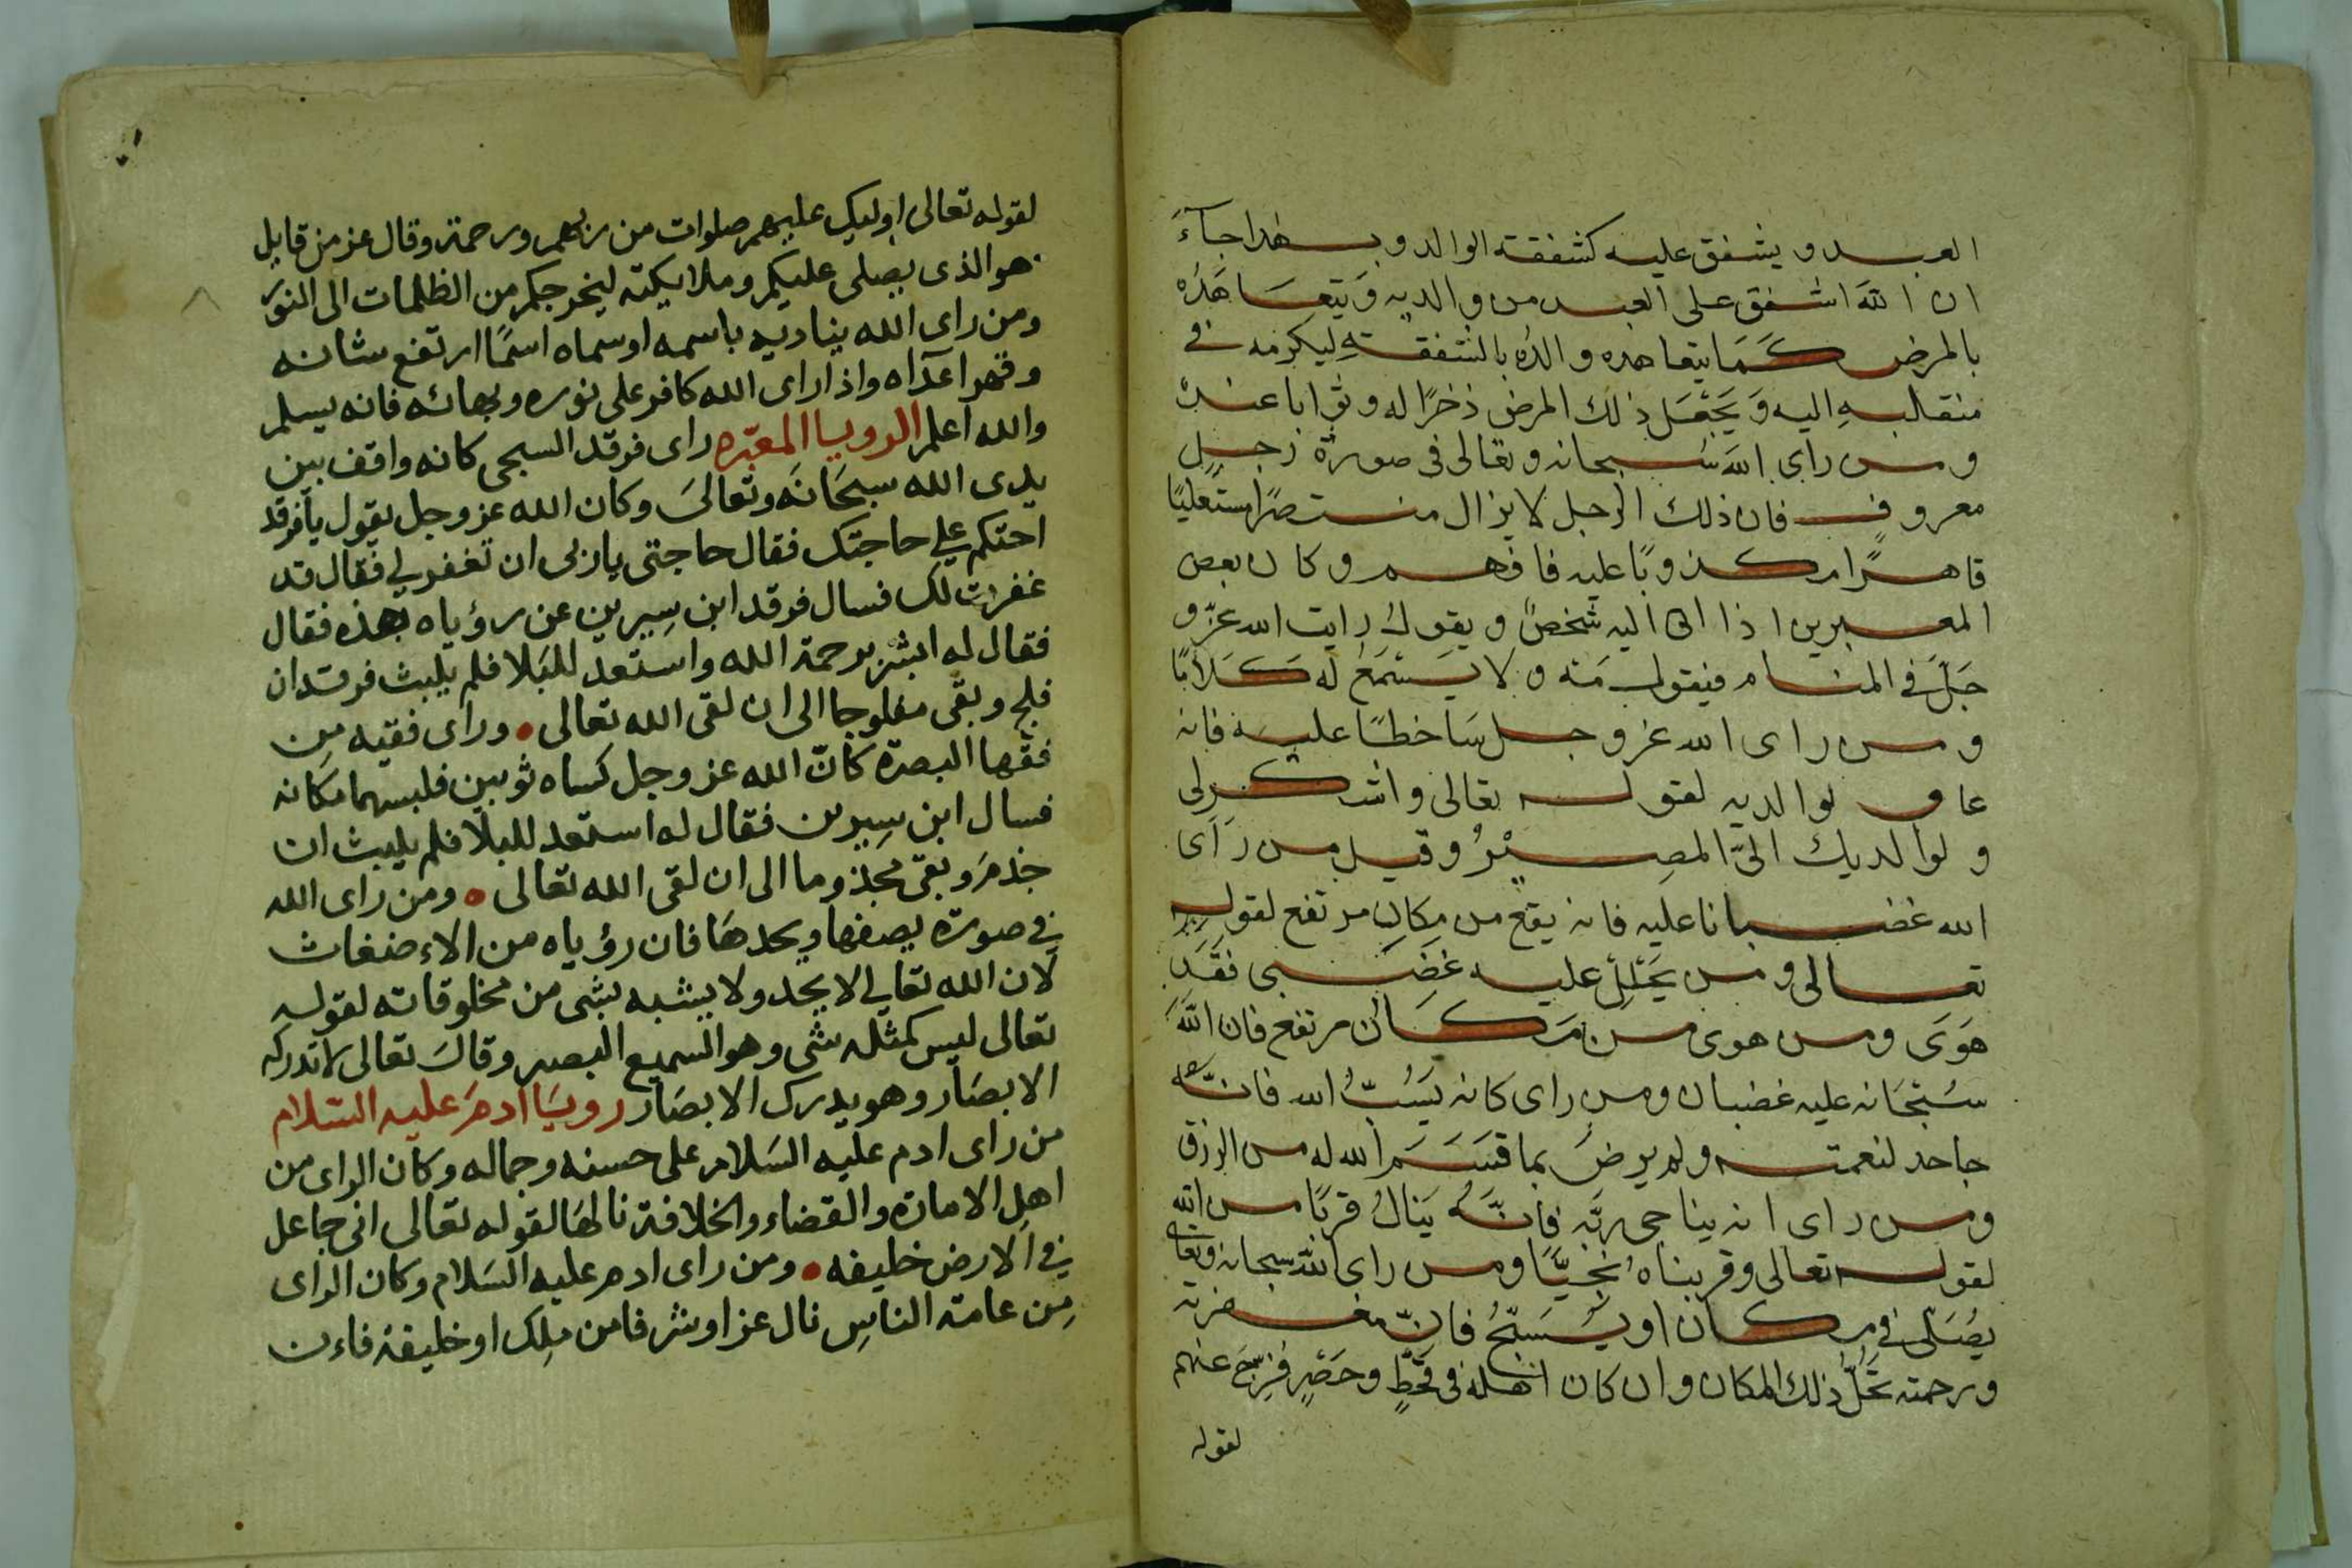 العبد ويشفق عليه كشفقة الوالد وبهذا جآء
ان الله اشفق على العبد من والديه وَيتعَاهَدُه
بالمرض كَمَا يتعاهده والدُه بالشفقةِ ليكرمه في
منقلبهِ اليه وَيَجْعَل ذلك المرض ذخرًا له وثوابا عنده
ومن راى اللهَ سُبحانه وتعالى في صورة رجلٍ
معروفٍ فان ذلك الرجل لا يزال منتصرًا مستعليًا
قاهرًا مكذوبًا عليه فافهم وكان بعض
المعبرين اذا اتى اليه شخصٌ ويقول رايت الله عزّ و
جَلّ في المنام فيقول مَه ولا يَستمَعُ له كَلامًا
ومن راى الله عز وجل سَاخطًا عليه فانه
عاق لوالديه لقوله تعالى واشكر لي
ولوالديك اليَّ المصِيْرُ وقيل من رَآى
الله غضبانا عليه فانه يقع من مكان مرتفع لقوله
تعالى ومن يَحْلِلْ عليه غَضَبي فقَدَ
هَوَى ومن هوى من مَكَان مرتفع فان اللهَ
سُبْحَانه عليه غضبان ومن راى كانه يَسُبُّ الله فانَّه
جاحد لنعمته ولم يرضَ بما قسَمَ الله له من الرزق
ومن راى انه يناجى ربَّه فانَّه يَنالُ قربًا من الله
لقوله تعالى وقربناهُ نجيًّا ومن راى الله سبحانه وتعالى
يصَلّى في مكان او يُسَبّحُ فانّ مغفرته
ورحمته تحُلُّ ذلك المكان وان كان اهله في قحْطٍ وحَصْرٍ فرّجَ عنهم
لقوله
لقوله تعالى اوليك عليهم صلوات من ربهم ورحمة وقال عز من قايل
هو الذى يصلى عليكم وملايكته ليخرجكم من الظلمات الى النور
ومن راى الله يناديه باسمه او سماه اسمًا ارتفع شانه
وقهر اعدآه واذا راى الله كافر على نوره وبهائه فانه يسلم
والله اعلم الرويا المعبّره راى فرقد السبجى كانه واقف بين
يدى الله سبحَانَه وتعالىَ وكان الله عز وجل يقول يافرقد
احتكم علي حاجتك فقال حاجتى ياربى ان تغفر لي فقال قد
غفرت لك فسال فرقد ابن سِيرين عن رؤياه بهذه فقال
فقال له ابشر برحمة الله واستعد للبَلا فلم يلبث فرقد ان
فلج وبقى مفلوجا الى ان لقى الله تعالى • وراى فقيه مِن
فقها البصرة كانّ الله عز وجل كساه ثوبين فلبسهما مكانه
فسال ابن سِيرين فقال له استعد للبلا فلم يلبث ان
جذمَ وبقى مجذوما الى ان لقى الله تعالى • ومن راى الله
في صورة يصفها ويحدهَا فان رؤياه من الاءضغاث
لان الله تعالي لا يحد ولا يشبه بشى من مخلوقاته لقوله
تعالى ليس كمثله شى وهو السميع البصير وقالَ تعالى لا تدركه
الابصَار وهو يدرك الابصَار رويَا ادمَ عليه السّلام
من راى ادم عليه السَلام على حسنه وجماله وكان الراى من
اهل الامارة والقضاء والخلافة نالهَا لقوله تعالى انى جاعل
في الارض خليفه • ومن راى ادم عليه السَلام وكان الراى
مِن عامة الناسِ نال عزا وشرفا من ملِك او خليفة فاءن